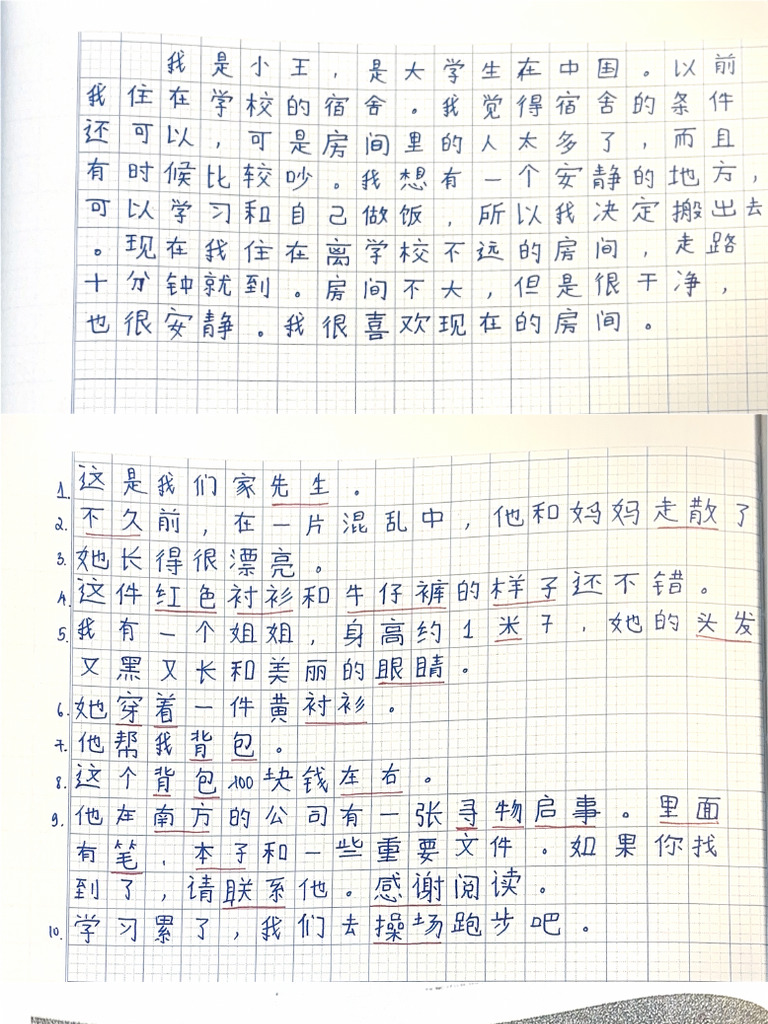 我是小王，是大学生在中国。以前
我住在学校的宿舍。我觉得宿舍的条件
还可以，可是房间里的人太多了，而且
有时候比较吵。我想有一个安静的地方，
可以学习和自己做饭，所以我决定搬出去
。现在我住在离学校不远的房间，走路
十分钟就到。房间不大，但是很干净，
也很安静。我很喜欢现在的房间。
1. 这是我们家先生。
2. 不久前，在一片混乱中，他和妈妈走散了
3. 她长得很漂亮。
4. 这件红色衬衫和牛仔裤的样子还不错。
5. 我有一个姐姐，身高约1米7，她的头发
又黑又长和美丽的眼睛。
6. 她穿着一件黄衬衫。
7. 他帮我背包。
8. 这个背包100块钱左右。
9. 他在南方的公司有一张寻物启事。里面
有笔，本子和一些重要文件。如果你找
到了，请联系他。感谢阅读。
10. 学习累了，我们去操场跑步吧。